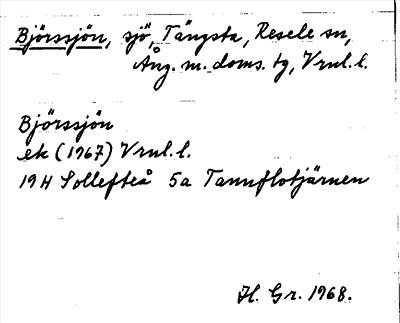 Björssjön, sjö, Tängsta, Resele sn,
Ång. m. doms. tg, Vrnl. l.
Björssjön
ek (1967) Vrnl. l.
19H Sollefteå 5a Tannflotjärnen
H. Gr. 1968.